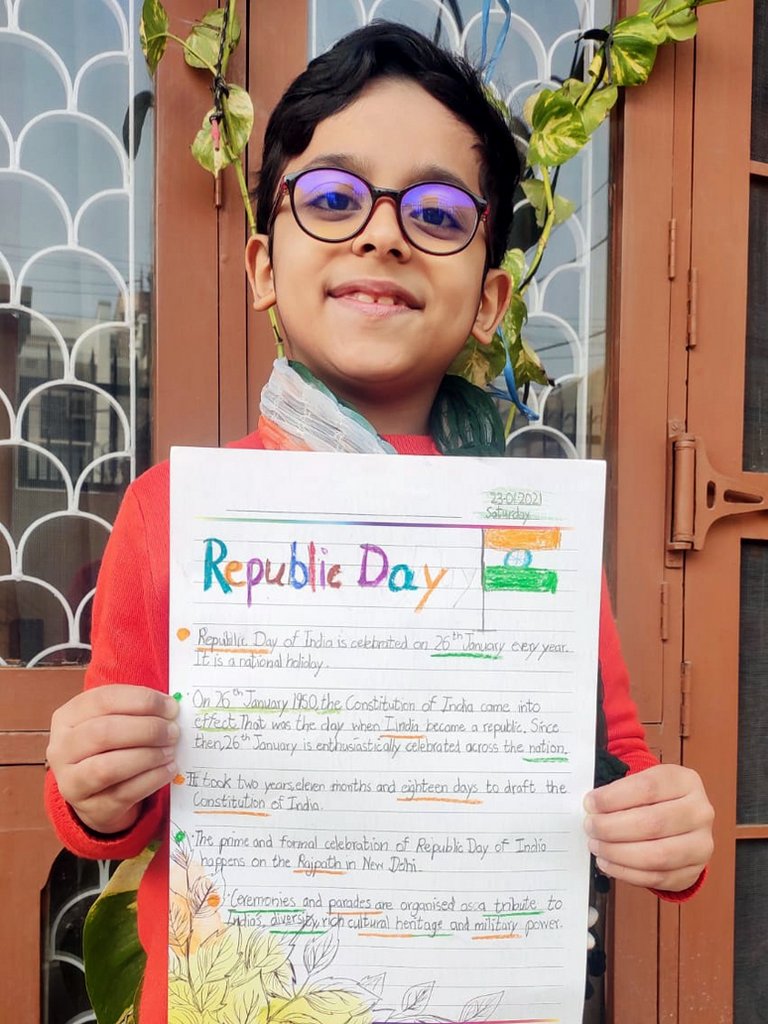 23-01-2021
Saturday
Republic Day
Republic Day of India is celebrated on 26th January every year.
It is a national holiday.
On 26th January 1950, the Constitution of India came into
effect. That was the day when India became a republic. Since
then, 26th January is enthusiastically celebrated across the nation.
It took two years, eleven months and eighteen days to draft the
Constitution of India.
The prime and formal celebration of Republic Day of India
happens on the Rajpath in New Delhi.
Ceremonies and parades are organised as a tribute to
India's, diversity, rich cultural heritage and military power.